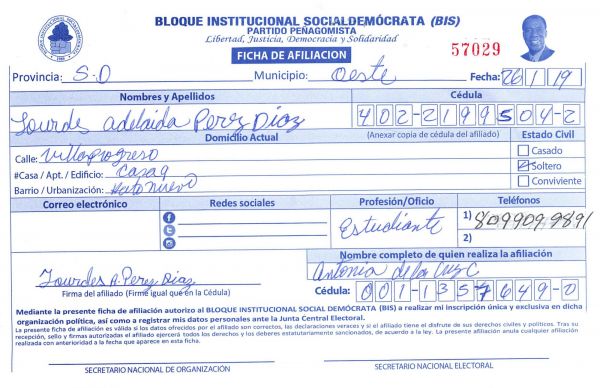 BLOQUE INSTITUCIONAL SOCIALDEMÓCRATA (BIS)
PARTIDO PEÑAGOMISTA
Libertad, Justicia, Democracia y Solidaridad
FICHA DE AFILIACION
57029
Provincia: S.D Municipio: Oeste Fecha: 26/1/19
Nombres y Apellidos Cédula
Lourdes adelaida Perez Diaz 402-2199504-2
Domicilio Actual (Anexar copia de cédula del afiliado) Estado Civil
Calle: Villa progreso Casado
#Casa / Apt. / Edificio: Casa 9 Soltero
Barrio / Urbanización: Hato nuevo Conviviente
Correo electrónico Redes sociales Profesión/Oficio Teléfonos
Estudiante 1) 8099099891
2)
Nombre completo de quien realiza la afiliación
Lourdes A. Perez Diaz Antonia de la Cruz C
Firma del afiliado (Firme igual que en la Cédula) Cédula: 001-1357649-0
Mediante la presente ficha de afiliación autorizo al BLOQUE INSTITUCIONAL SOCIAL DEMÓCRATA (BIS) a realizar mi inscripción única y exclusiva en dicha
organización política, así como a registrar mis datos personales ante la Junta Central Electoral.
La presente ficha de afiliación es válida si los datos ofrecidos por el afiliado son correctos, las declaraciones veraces y si el afiliado tiene el disfrute de sus derechos civiles y políticos. Tras su
recepción, sello y firmas autorizadas el afiliado ejercerá todos los derechos y los deberes estatutariamente sancionados, de acuerdo a la ley. La presente afiliación anula cualquier afiliación
realizada con anterioridad a la fecha que aparece en esta ficha.
SECRETARIO NACIONAL DE ORGANIZACIÓN SECRETARIO NACIONAL ELECTORAL